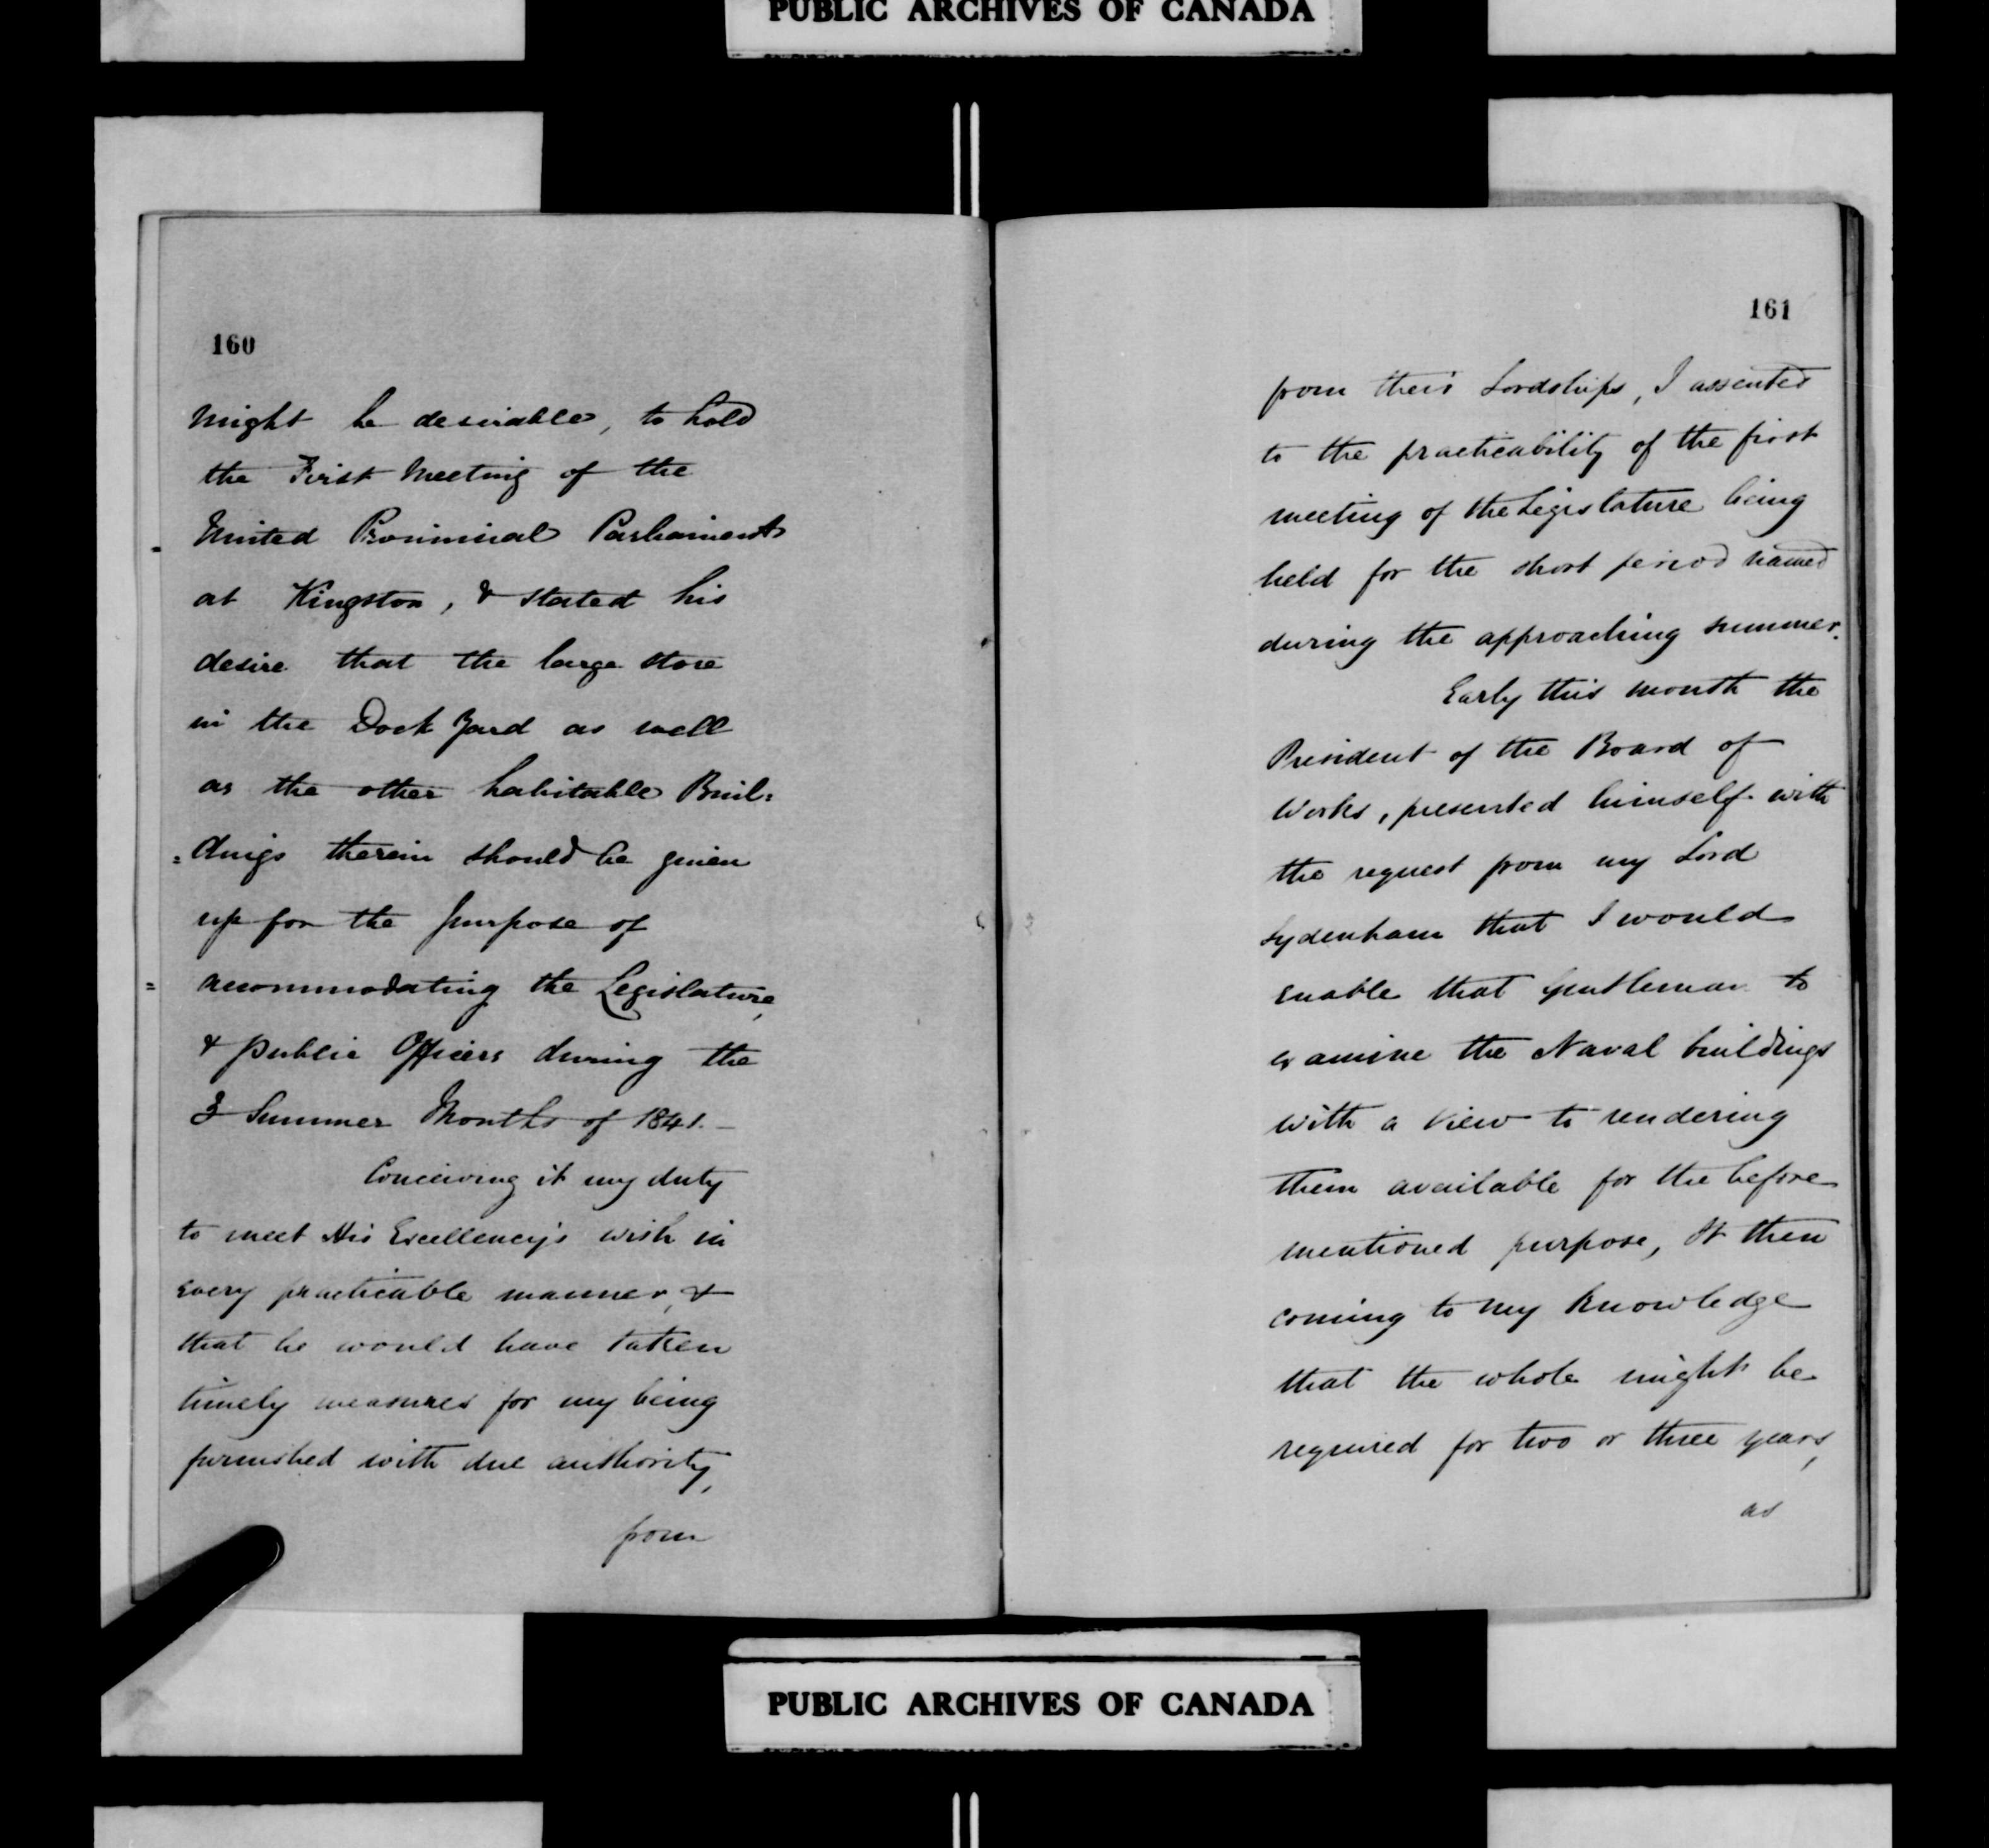 PUBLIC ARCHIVES OF CANADA
160
might be desirable, to hold
the First Meeting of the
United Provincial Parliament
at Kingston, & stated his
desire that the large store
in the Dock Yard as well
as the other habitable Buil=
=dings therein should be given
up for the purpose of
accommodating the Legislature,
& public Officers during the
3 Summer Months of 1841.—
Conceiving it my duty
to meet His Excellency's wish in
every practicable manner, &
that he would have taken
timely measures for my being
furnished with due authority,
from
161
from their Lordships, I assented
to the practicability of the first
meeting of the Legislature being
held for the short period named
during the approaching summer.
Early this month the
President of the Board of
Works, presented himself with
the request from my Lord
Sydenham that I would
enable that Gentleman to
examine the Naval buildings
with a view to rendering
them available for the before
mentioned purpose, It then
coming to my knowledge
that the whole might be
required for two or three years,
as
PUBLIC ARCHIVES OF CANADA